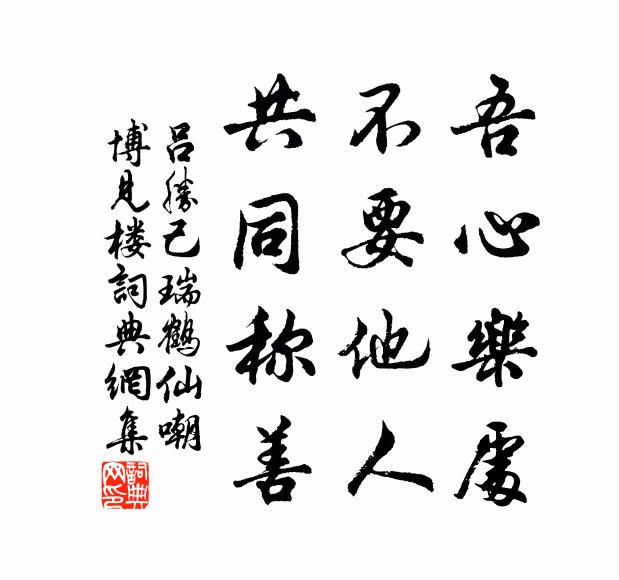 吾心樂處
不要他人
共同称善
呂勝己瑞鶴仙嘲
博見楼詞典網集
詞典
网印